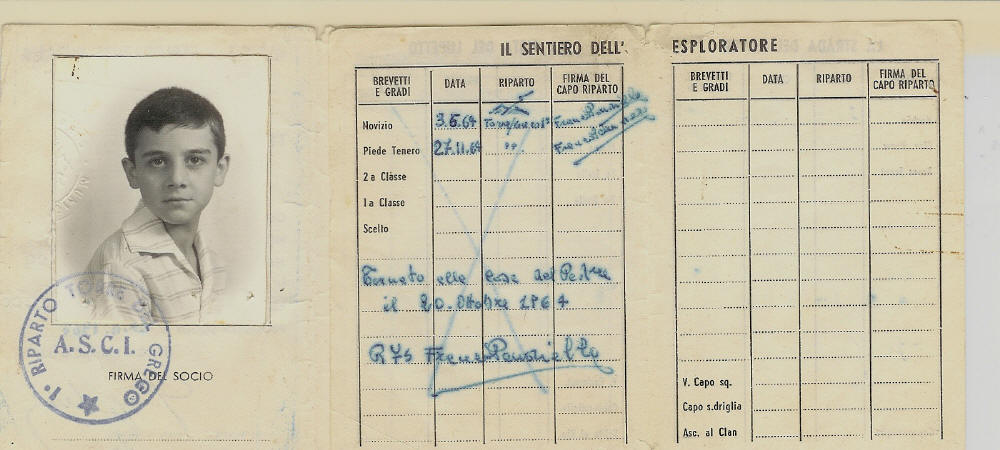 1° RIPARTO TORRE DEL GRECO
A.S.C.I.
FIRMA DEL SOCIO
IL SENTIERO DELL' ESPLORATORE
BREVETTI E GRADI DATA RIPARTO FIRMA DEL CAPO RIPARTO
Novizio 3.5.64
Piede Tenero 27.11.64 "
2a Classe
1a Classe
Scelto
Tornato alla Casa del Padre
il 20 Ottobre 1964
BREVETTI E GRADI DATA RIPARTO FIRMA DEL CAPO RIPARTO
V. Capo sq.
Capo s.driglia
Asc. al Clan